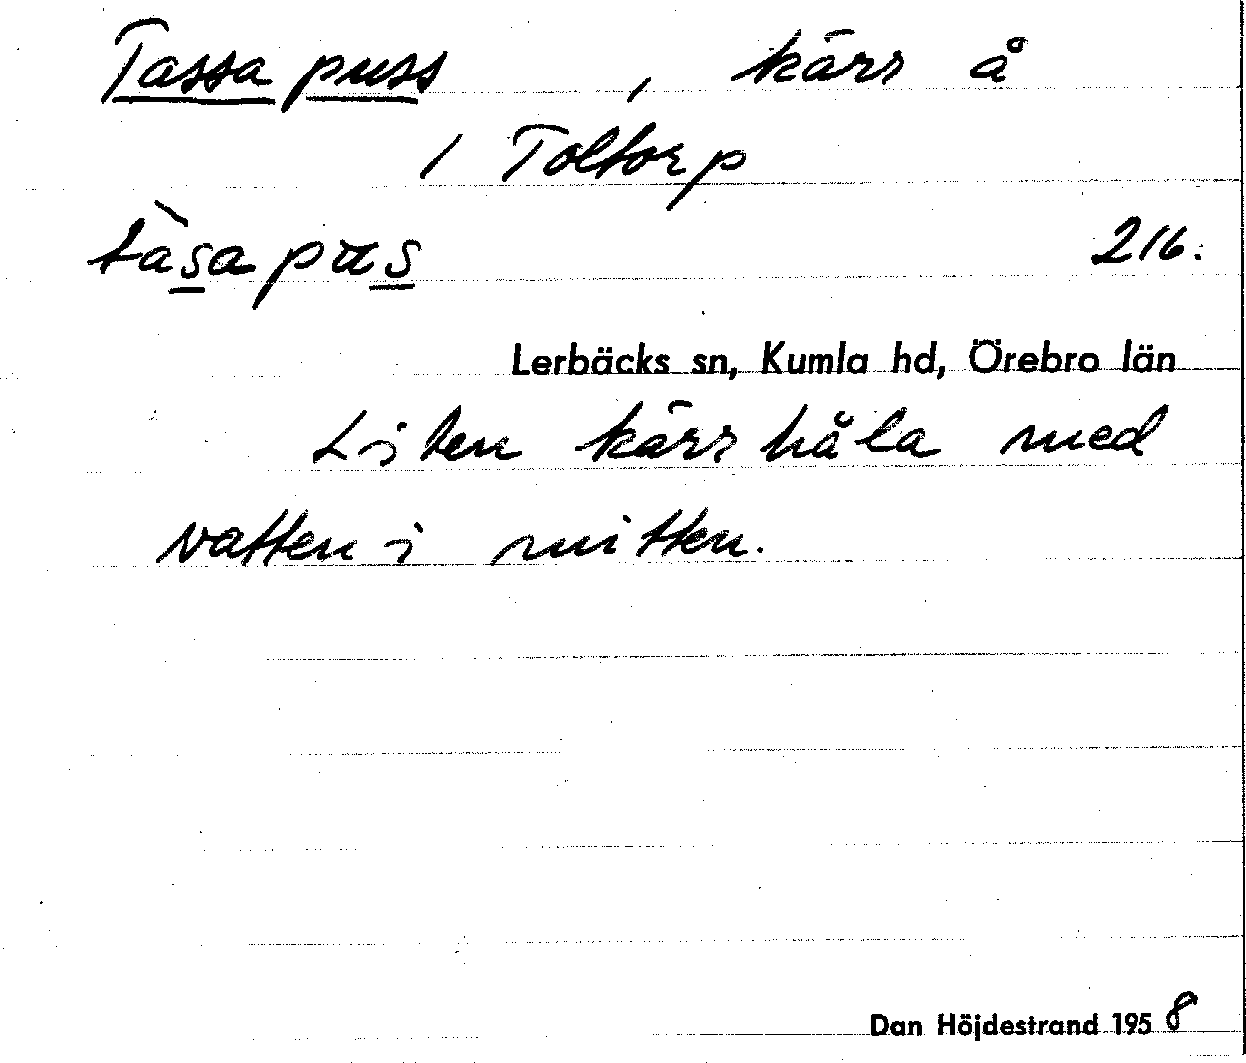 Tassapuss, kärr å
/ Toltorp
tàsapus 216.
Lerbäcks sn, Kumla hd, Örebro län
Liten kärrhåla med
vatten i mitten.
Dan Höjdestrand 1958